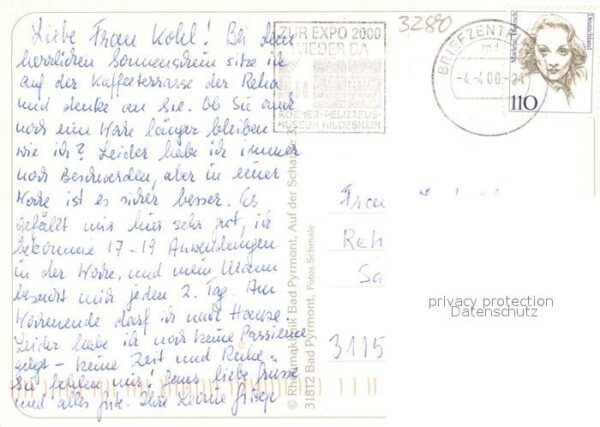 Liebe Frau Kohl! Bei dem
herrlichen Sonnenschein sitze ich
auf der Kaffeeterrasse der Reha
und denke an Sie. Ob Sie auch
noch eine Woche länger bleiben
wie ich? Leider habe ich immer
noch Beschwerden, aber in einer
Woche ist es sicher besser. Es
gefällt mir hier sehr gut, ich
bekomme 17-19 Anwendungen
in der Woche, und mein Mann
besucht mich jeden 2. Tag. Am
Wochenende darf ich nach Hause
Leider habe ich noch keine Passiene
gelegt - keine Zeit und Ruhe.
Sie fehlen mir! Ganz liebe Grüsse
und alles Gute. Ihre
© Rheumaklinik Bad Pyrmont, Auf der Schanze
31812 Bad Pyrmont, Fotos Schmale
ZUR EXPO 2000
WIEDER DA
ROEMER-PELIZAEUS-
MUSEUM HILDESHEIM
32880
BRIEFZENTRUM
md
-4.-4.00.-21
Marlene Dietrich
Deutschland
110
Frau
Reh
Sa
3115
privacy protection
Datenschutz